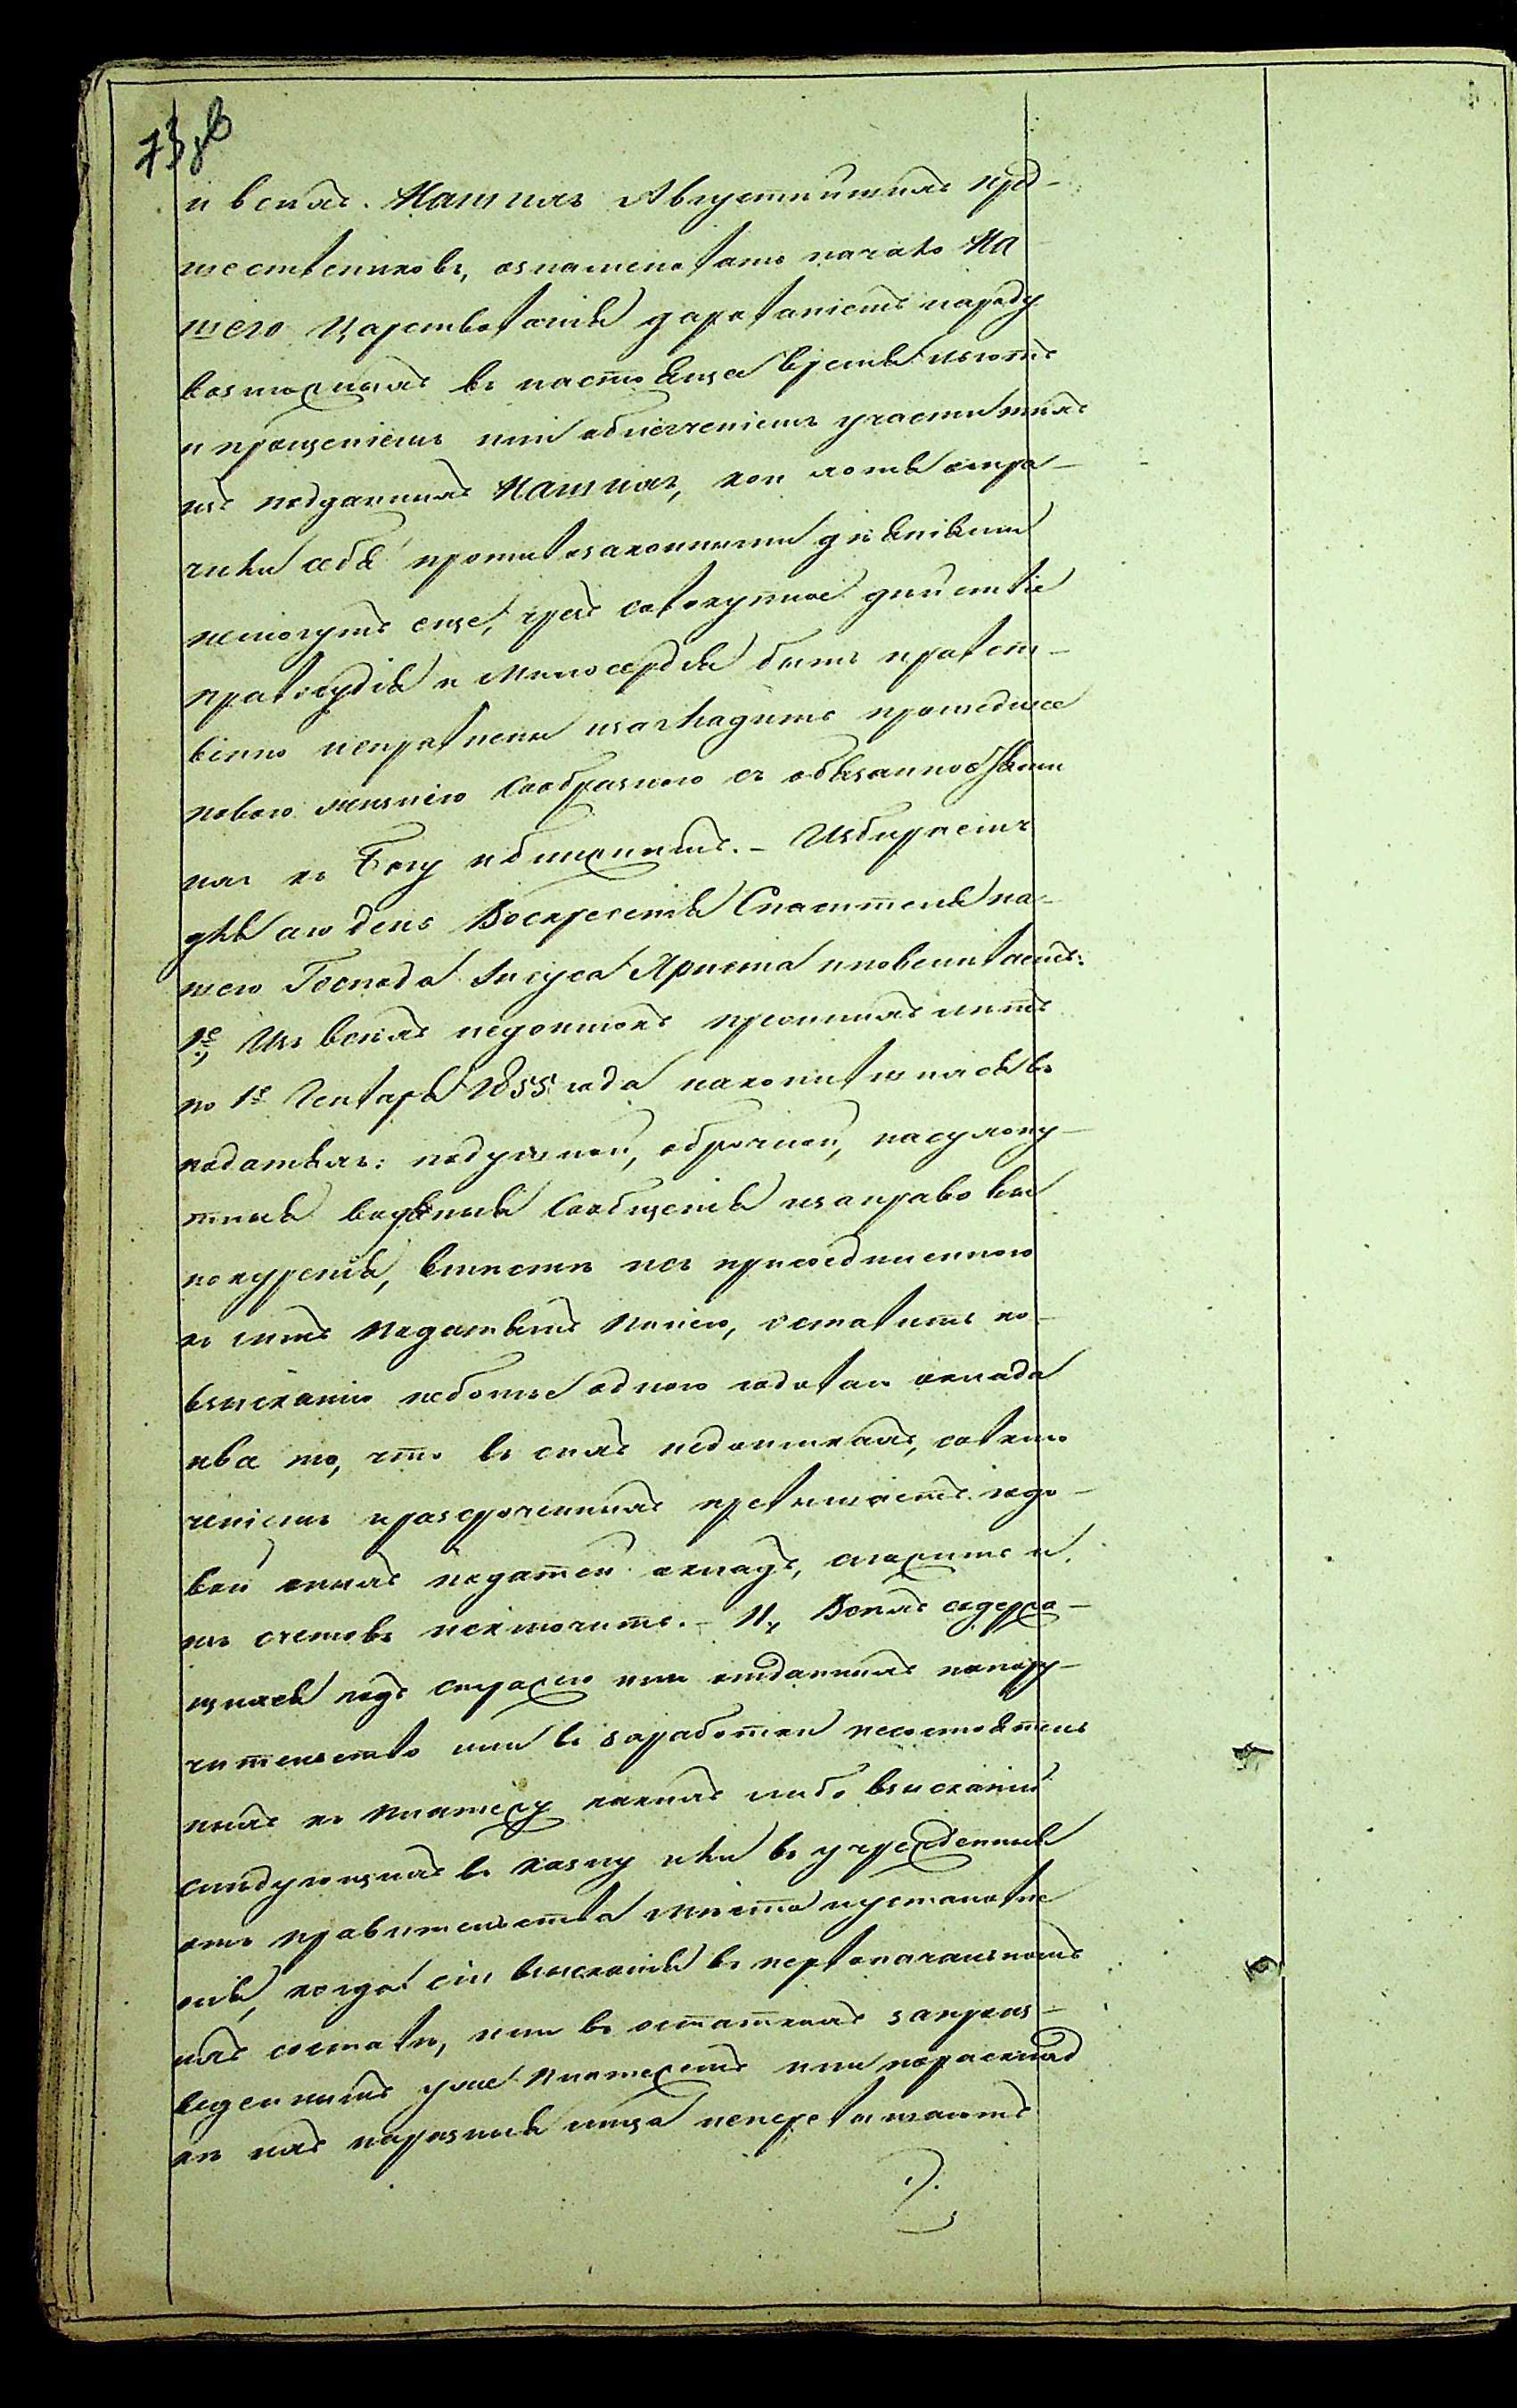 73 об
и всѣхъ Нашихъ Августѣйшихъ пред-
шественниковъ, ознаменовать начало На
шего Царствованія дарованіемъ народу
возможныхъ въ настоящее время льготъ
и прощеніемъ или облегченіемъ участи тѣхъ
изъ подданныхъ Нашихъ, кои хотя омра-
чили себя противозаконными дѣяніями
немогутъ еще, чрезъ совокупное дѣйствіе
правосудія и милосердія быть нравст-
венно исправлены изагладить прошедшее
новою жизнію сообразною съ обязанностями
ихъ къ Богу и ближнимъ. - Избираемъ
для сего день Воскресенія Спасителя на-
шего Господа Іисуса Христа иповелѣваемъ:
1е., Изъ всѣхъ недоимокъ прежнихъ лѣтъ
по 1е Генваря 1855 года накопившихся въ
податяхъ: подушной, оброчной, насухопу-
тныя водяныя сообщенія изаправо ви
нокуренія, вмѣстѣ исъ присоединенною
къ симъ податямъ пенею, оставить ко
взысканію неболѣе одного годоваго оклада
ивсе то, что въ сихъ недоимкахъ, совклю
ченіемъ иразсроченныхъ превышаетъ годо-
вой сихъ податей окладъ, сложить и
изъ счетовъ исключить. - II., Всѣхъ содержа-
щихся подъ стражею или отданныхъ напору-
чительство или въ заработки несостоятель
ныхъ къ платежу какихъ либо взысканій
слѣдующихъ въ казну или въ учрежденныя
отъ правительства мѣста иустановле
нія, когда сіи взысканія въ первоначальномъ
ихъ составѣ, или въ остаткахъ запроиз-
веденнымъ уже платежемъ или пораскладкѣ
ихъ наразныя лица непревышаютъ